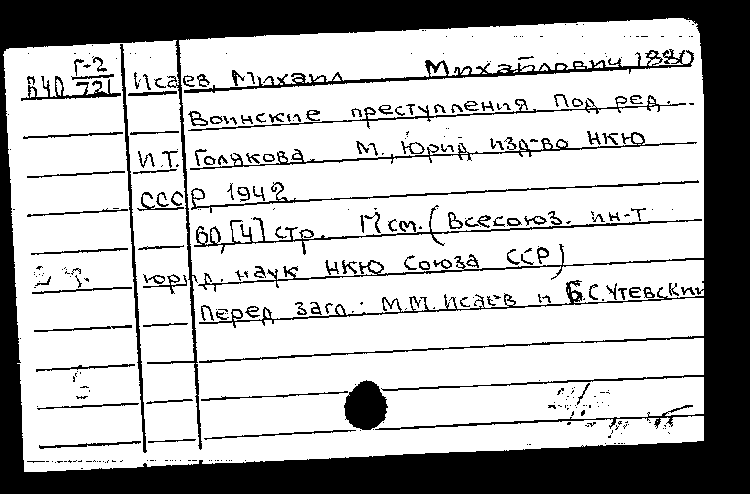 В40 Г-2/721 Исаев, Михаил Михайлович, 1880
Воинские преступления. Под ред.
И.Т. Голякова. М., Юрид. изд-во НКЮ
СССР, 1942.
60, [4] стр. 17 см. (Всесоюз. ин-т
юрид. наук НКЮ Союза ССР)
Перед загл.: М.М. Исаев и Б.С. Утевский